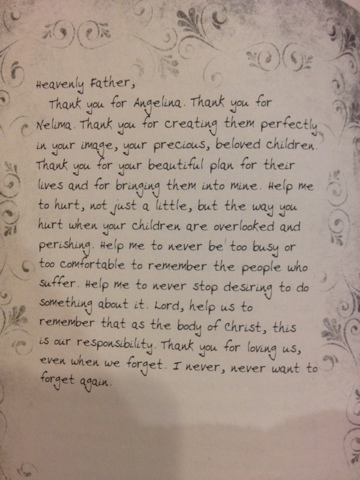 Heavenly Father,
Thank you for Angelina. Thank you for
Nelima. Thank you for creating them perfectly
in your image, your precious, beloved children.
Thank you for your beautiful plan for their
lives and for bringing them into mine. Help me
to hurt, not just a little, but the way you
hurt when your children are overlooked and
perishing. Help me to never be too busy or
too comfortable to remember the people who
suffer. Help me to never stop desiring to do
something about it. Lord, help us to
remember that as the body of Christ, this
is our responsibility. Thank you for loving us,
even when we forget. I never, never want to
forget again.